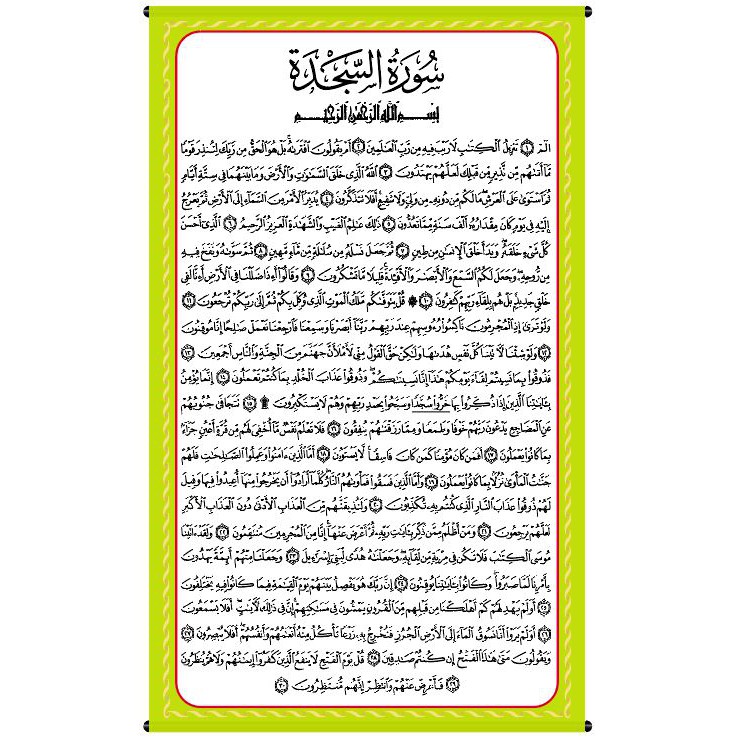 سُورَةُ السَّجْدَة
بِسْمِ اللَّهِ الرَّحْمَٰنِ الرَّحِيمِ
الٓمٓ ١ تَنزِيلُ الْكِتَٰبِ لَا رَيْبَ فِيهِ مِن رَّبِّ الْعَٰلَمِينَ ٢ أَمْ يَقُولُونَ افْتَرَىٰهُ بَلْ هُوَ الْحَقُّ مِن رَّبِّكَ لِتُنذِرَ قَوْمًا
مَّا أَتَىٰهُم مِّن نَّذِيرٍ مِّن قَبْلِكَ لَعَلَّهُمْ يَهْتَدُونَ ٣ اللَّهُ الَّذِي خَلَقَ السَّمَٰوَٰتِ وَالْأَرْضَ وَمَا بَيْنَهُمَا فِي سِتَّةِ أَيَّامٍ
ثُمَّ اسْتَوَىٰ عَلَى الْعَرْشِ مَا لَكُم مِّن دُونِهِ مِن وَلِيٍّ وَلَا شَفِيعٍ أَفَلَا تَتَذَكَّرُونَ ٤ يُدَبِّرُ الْأَمْرَ مِنَ السَّمَاءِ إِلَى الْأَرْضِ ثُمَّ يَعْرُجُ
إِلَيْهِ فِي يَوْمٍ كَانَ مِقْدَارُهُ أَلْفَ سَنَةٍ مِّمَّا تَعُدُّونَ ٥ ذَٰلِكَ عَٰلِمُ الْغَيْبِ وَالشَّهَٰدَةِ الْعَزِيزُ الرَّحِيمُ ٦ الَّذِي أَحْسَنَ
كُلَّ شَيْءٍ خَلَقَهُ وَبَدَأَ خَلْقَ الْإِنسَٰنِ مِن طِينٍ ٧ ثُمَّ جَعَلَ نَسْلَهُ مِن سُلَٰلَةٍ مِّن مَّاءٍ مَّهِينٍ ٨ ثُمَّ سَوَّىٰهُ وَنَفَخَ فِيهِ
مِن رُّوحِهِ وَجَعَلَ لَكُمُ السَّمْعَ وَالْأَبْصَٰرَ وَالْأَفْـِٔدَةَ قَلِيلًا مَّا تَشْكُرُونَ ٩ وَقَالُوا أَءِذَا ضَلَلْنَا فِي الْأَرْضِ أَءِنَّا لَفِي
خَلْقٍ جَدِيدٍ بَلْ هُم بِلِقَاءِ رَبِّهِمْ كَٰفِرُونَ ١٠ ۞ قُلْ يَتَوَفَّىٰكُم مَّلَكُ الْمَوْتِ الَّذِي وُكِّلَ بِكُمْ ثُمَّ إِلَىٰ رَبِّكُمْ تُرْجَعُونَ ١١
وَلَوْ تَرَىٰ إِذِ الْمُجْرِمُونَ نَاكِسُوا رُءُوسِهِمْ عِندَ رَبِّهِمْ رَبَّنَا أَبْصَرْنَا وَسَمِعْنَا فَارْجِعْنَا نَعْمَلْ صَٰلِحًا إِنَّا مُوقِنُونَ
١٢ وَلَوْ شِئْنَا لَءَاتَيْنَا كُلَّ نَفْسٍ هُدَىٰهَا وَلَٰكِنْ حَقَّ الْقَوْلُ مِنِّي لَأَمْلَأَنَّ جَهَنَّمَ مِنَ الْجِنَّةِ وَالنَّاسِ أَجْمَعِينَ ١٣
فَذُوقُوا بِمَا نَسِيتُمْ لِقَاءَ يَوْمِكُمْ هَٰذَا إِنَّا نَسِينَٰكُمْ وَذُوقُوا عَذَابَ الْخُلْدِ بِمَا كُنتُمْ تَعْمَلُونَ ١٤ إِنَّمَا يُؤْمِنُ
بِـَٔايَٰتِنَا الَّذِينَ إِذَا ذُكِّرُوا بِهَا خَرُّوا سُجَّدًا وَسَبَّحُوا بِحَمْدِ رَبِّهِمْ وَهُمْ لَا يَسْتَكْبِرُونَ ۩ ١٥ تَتَجَافَىٰ جُنُوبُهُمْ
عَنِ الْمَضَاجِعِ يَدْعُونَ رَبَّهُمْ خَوْفًا وَطَمَعًا وَمِمَّا رَزَقْنَٰهُمْ يُنفِقُونَ ١٦ فَلَا تَعْلَمُ نَفْسٌ مَّا أُخْفِيَ لَهُم مِّن قُرَّةِ أَعْيُنٍ جَزَاءً
بِمَا كَانُوا يَعْمَلُونَ ١٧ أَفَمَن كَانَ مُؤْمِنًا كَمَن كَانَ فَاسِقًا لَّا يَسْتَوُونَ ١٨ أَمَّا الَّذِينَ ءَامَنُوا وَعَمِلُوا الصَّٰلِحَٰتِ فَلَهُمْ
جَنَّٰتُ الْمَأْوَىٰ نُزُلًا بِمَا كَانُوا يَعْمَلُونَ ١٩ وَأَمَّا الَّذِينَ فَسَقُوا فَمَأْوَىٰهُمُ النَّارُ كُلَّمَا أَرَادُوا أَن يَخْرُجُوا مِنْهَا أُعِيدُوا فِيهَا وَقِيلَ
لَهُمْ ذُوقُوا عَذَابَ النَّارِ الَّذِي كُنتُم بِهِ تُكَذِّبُونَ ٢٠ وَلَنُذِيقَنَّهُم مِّنَ الْعَذَابِ الْأَدْنَىٰ دُونَ الْعَذَابِ الْأَكْبَرِ
لَعَلَّهُمْ يَرْجِعُونَ ٢١ وَمَنْ أَظْلَمُ مِمَّن ذُكِّرَ بِـَٔايَٰتِ رَبِّهِ ثُمَّ أَعْرَضَ عَنْهَا إِنَّا مِنَ الْمُجْرِمِينَ مُنتَقِمُونَ ٢٢ وَلَقَدْ ءَاتَيْنَا
مُوسَى الْكِتَٰبَ فَلَا تَكُن فِي مِرْيَةٍ مِّن لِّقَائِهِ وَجَعَلْنَٰهُ هُدًى لِّبَنِي إِسْرَٰءِيلَ ٢٣ وَجَعَلْنَا مِنْهُمْ أَئِمَّةً يَهْدُونَ
بِأَمْرِنَا لَمَّا صَبَرُوا وَكَانُوا بِـَٔايَٰتِنَا يُوقِنُونَ ٢٤ إِنَّ رَبَّكَ هُوَ يَفْصِلُ بَيْنَهُمْ يَوْمَ الْقِيَٰمَةِ فِيمَا كَانُوا فِيهِ يَخْتَلِفُونَ
٢٥ أَوَلَمْ يَهْدِ لَهُمْ كَمْ أَهْلَكْنَا مِن قَبْلِهِم مِّنَ الْقُرُونِ يَمْشُونَ فِي مَسَٰكِنِهِمْ إِنَّ فِي ذَٰلِكَ لَءَايَٰتٍ أَفَلَا يَسْمَعُونَ
٢٦ أَوَلَمْ يَرَوْا أَنَّا نَسُوقُ الْمَاءَ إِلَى الْأَرْضِ الْجُرُزِ فَنُخْرِجُ بِهِ زَرْعًا تَأْكُلُ مِنْهُ أَنْعَٰمُهُمْ وَأَنفُسُهُمْ أَفَلَا يُبْصِرُونَ ٢٧
وَيَقُولُونَ مَتَىٰ هَٰذَا الْفَتْحُ إِن كُنتُمْ صَٰدِقِينَ ٢٨ قُلْ يَوْمَ الْفَتْحِ لَا يَنفَعُ الَّذِينَ كَفَرُوا إِيمَٰنُهُمْ وَلَا هُمْ يُنظَرُونَ
٢٩ فَأَعْرِضْ عَنْهُمْ وَانتَظِرْ إِنَّهُم مُّنتَظِرُونَ ٣٠